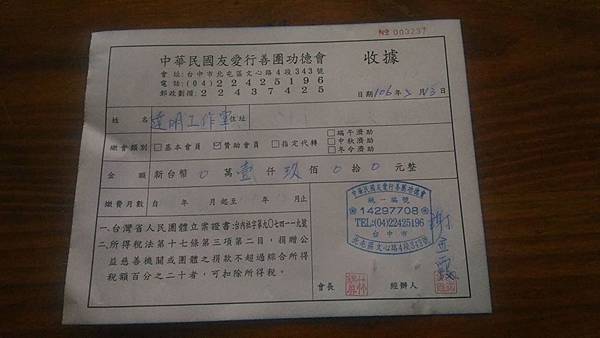 № 003237
中華民國友愛行善團功德會 收據
會址:台中市北屯區文心路4段343號
電話:(04)22425196
郵政劃撥:22437425
日期106年5月15日
姓名 達明工作車 住址
繳會類別 □基本會員 ☑贊助會員 □指定代轉 □端午濟助
□中秋濟助
□冬令濟助
金額 新台幣0萬壹仟玖佰0拾0元整
繳費月數 自 年 月起至 年 月止
一.台灣省人民團體立案證書:台內社字第九0七四一一九號
二.所得稅法第十七條第三項第二目,捐贈公
益慈善機關或團體之捐款不超過綜合所得
稅額百分之二十者,可扣除所得稅。
中華民國友愛行善團功德會
統一編號
14297708
TEL:(04)22425196
台中市
北屯區文心路4段343號
會長 經辦人